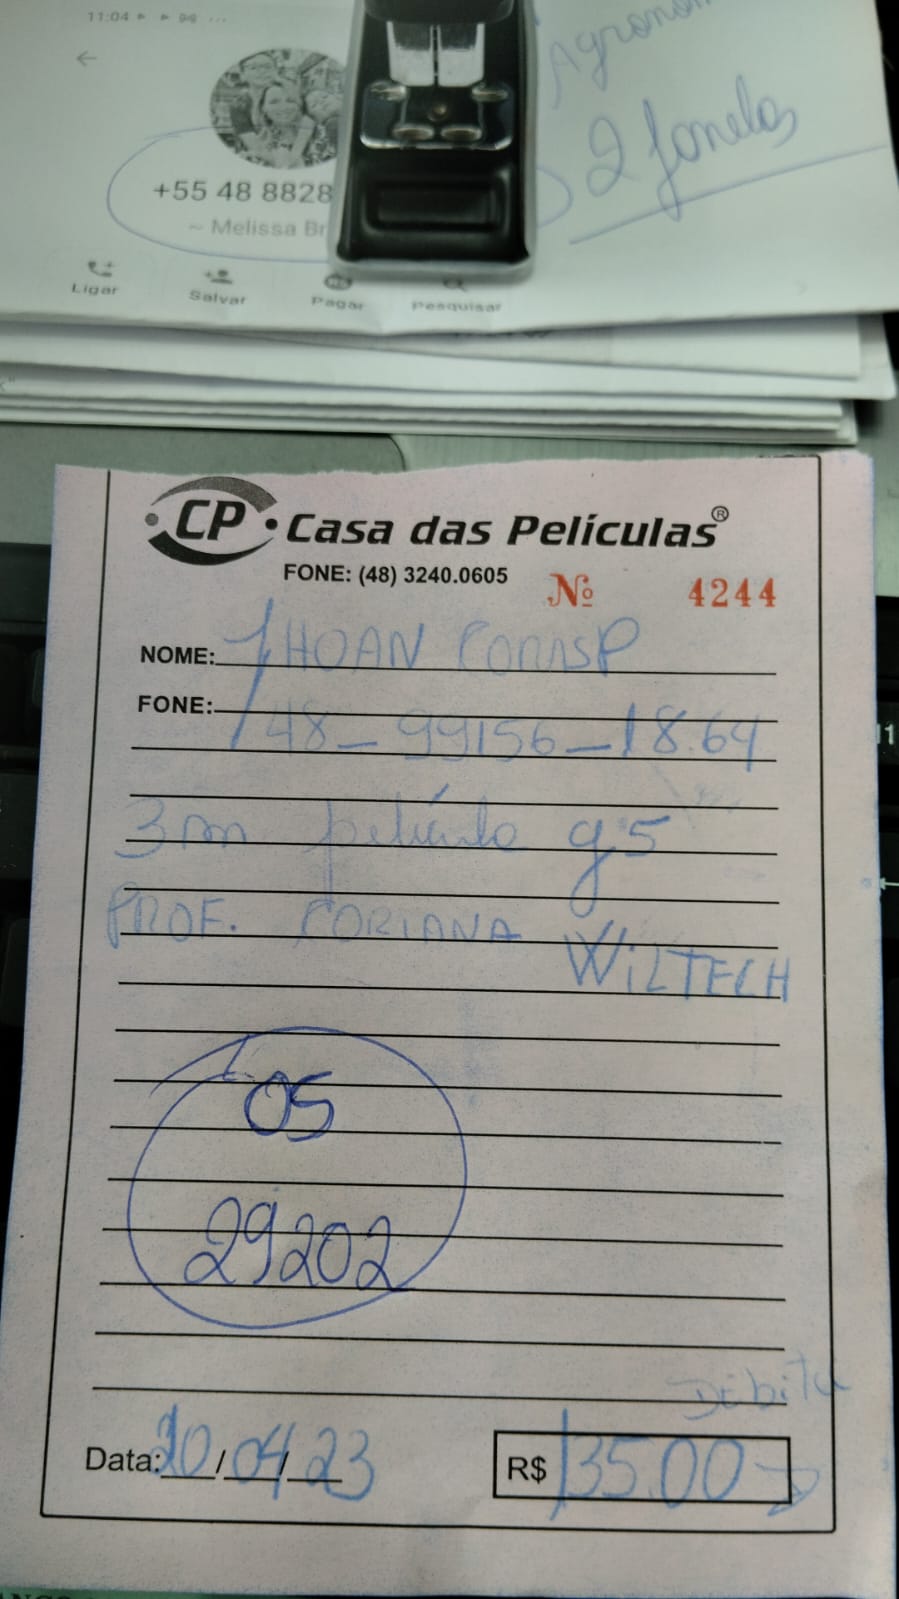 11:04
Agronom
2 Janelas
+55 48 8828
~ Melissa Br
Ligar Salvar Pagar Pesquisar
CP Casa das Películas®
FONE: (48) 3240.0605 Nº 4244
NOME: JHOAN
FONE: 48-99156-18.64
3m película g5
PROF. CORIANA WILTECH
OS
29202
Débito
Data: 20/04/23 R$ 135.00